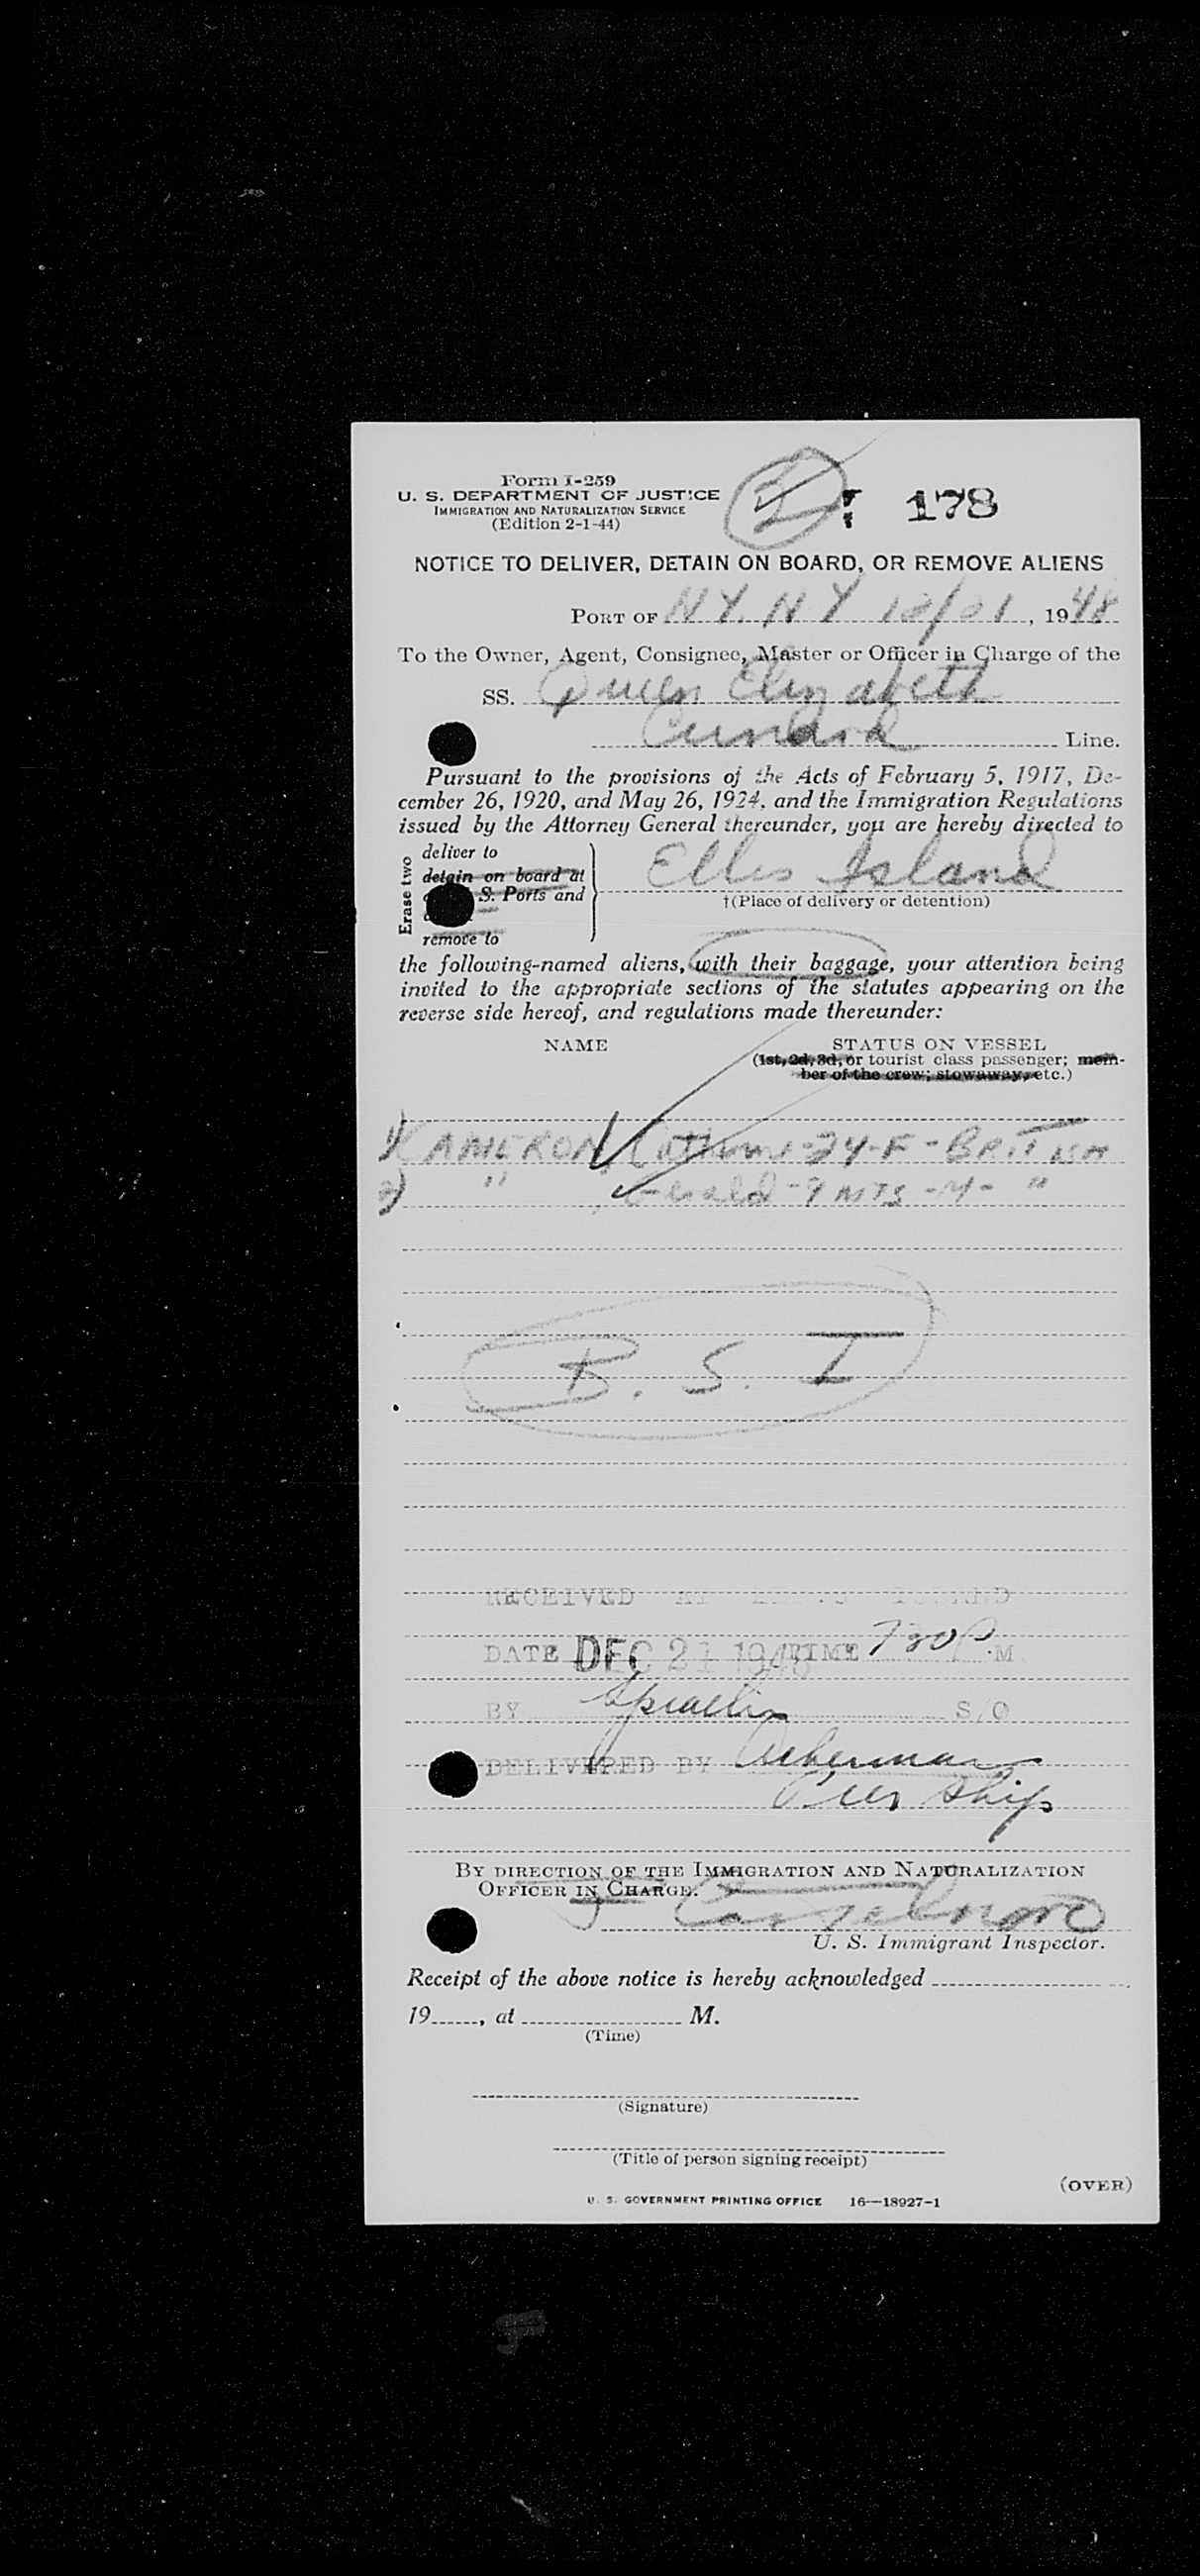 Form I-259
U. S. DEPARTMENT OF JUSTICE
IMMIGRATION AND NATURALIZATION SERVICE
(Edition 2-1-44)
2
178
NOTICE TO DELIVER, DETAIN ON BOARD, OR REMOVE ALIENS
PORT OF N.Y. N Y 12/21, 1948
To the Owner, Agent, Consignee, Master or Officer in Charge of the
SS. Queen Elizabeth
Cunard Line.
Pursuant to the provisions of the Acts of February 5, 1917, De-
cember 26, 1920, and May 26, 1924, and the Immigration Regulations
issued by the Attorney General thereunder, you are hereby directed to
Erase two
deliver to
detain on board at
S. Ports and
remove to
Ellis Island
†(Place of delivery or detention)
the following-named aliens, with their baggage, your attention being
invited to the appropriate sections of the statutes appearing on the
reverse side hereof, and regulations made thereunder:
NAME STATUS ON VESSEL
(1st, 2d, 3d, or tourist class passenger; mem-
ber of the crew; stowaway, etc.)
1) CAMERON, - 24 - F - BRITISH
2) " Gerald - 9 MTS - M - "
B. S. I
RECEIVED AT ELLIS ISLAND
DATE DEC 21 1948 TIME 730 P. M
BY S/O
DELIVERED BY Ackerman
Ship
BY DIRECTION OF THE IMMIGRATION AND NATURALIZATION
OFFICER IN CHARGE.
U. S. Immigrant Inspector.
Receipt of the above notice is hereby acknowledged
19, at M.
(Time)
(Signature)
(Title of person signing receipt)
(OVER)
U. S. GOVERNMENT PRINTING OFFICE 16—18927-1